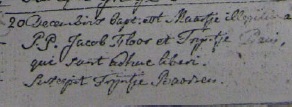 20 Decembris Bapt. est Maartje illegitima
P.P. Jacob Floor et Trijntje
qui sunt adhuc liberi.
Suscepit Trijntje Baerdsen.